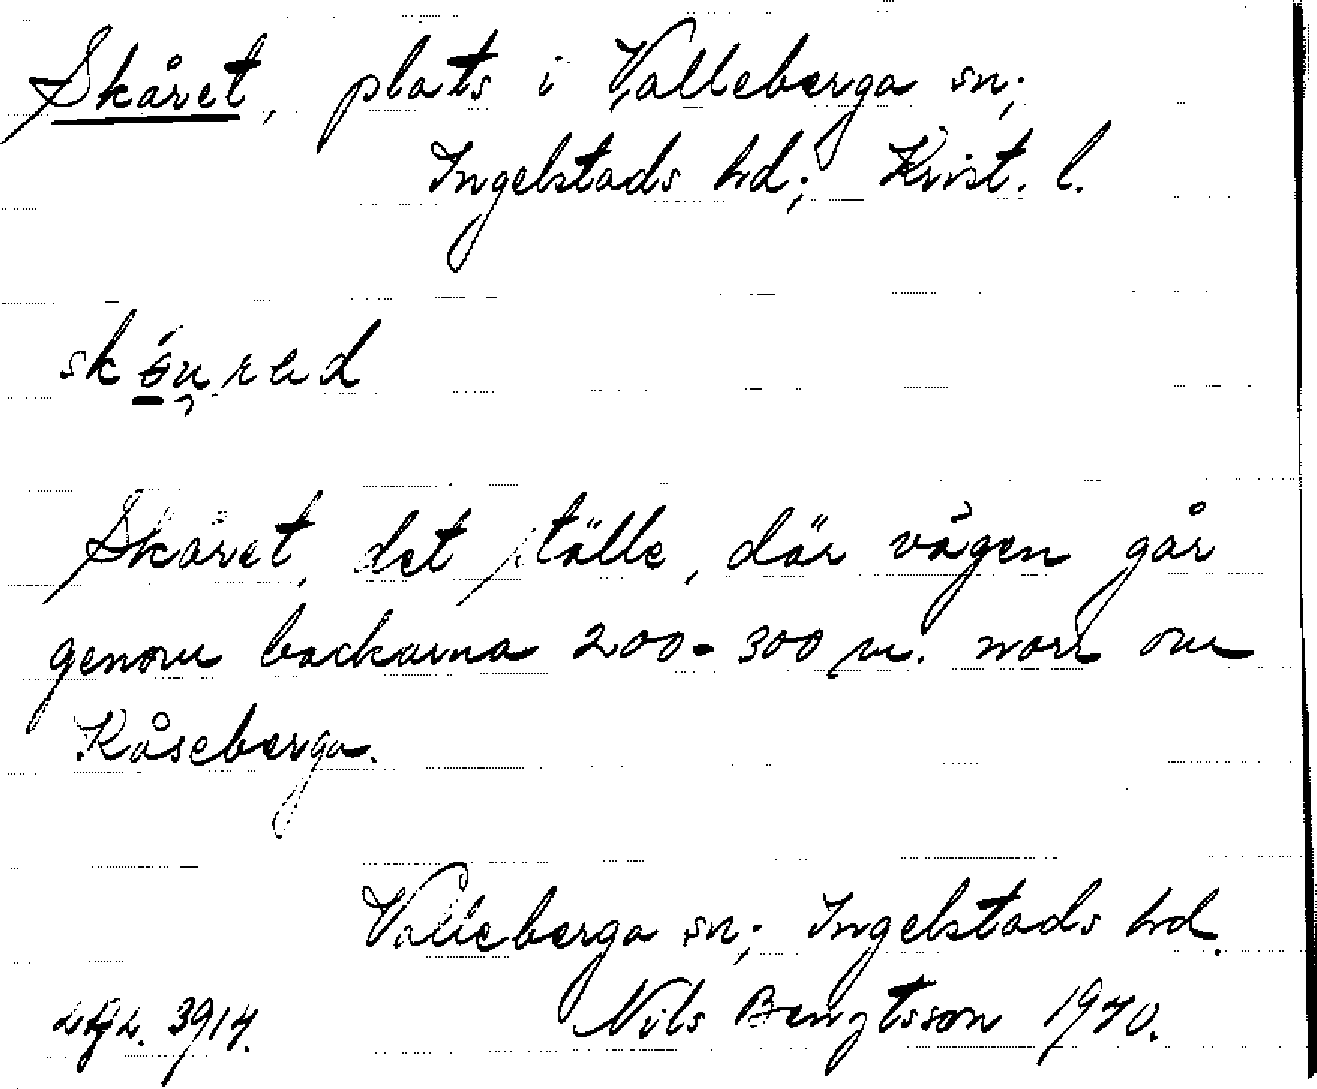 Skåret, plats i Valleberga sn;
Ingelstads hd; Krist. l.
Skåret, det ställe, där vägen går
genom backarna 200-300 m. norr om
Kåseberga.
Valleberga sn; Ingelstads hd.
3914. Nils Bengtsson 1940.